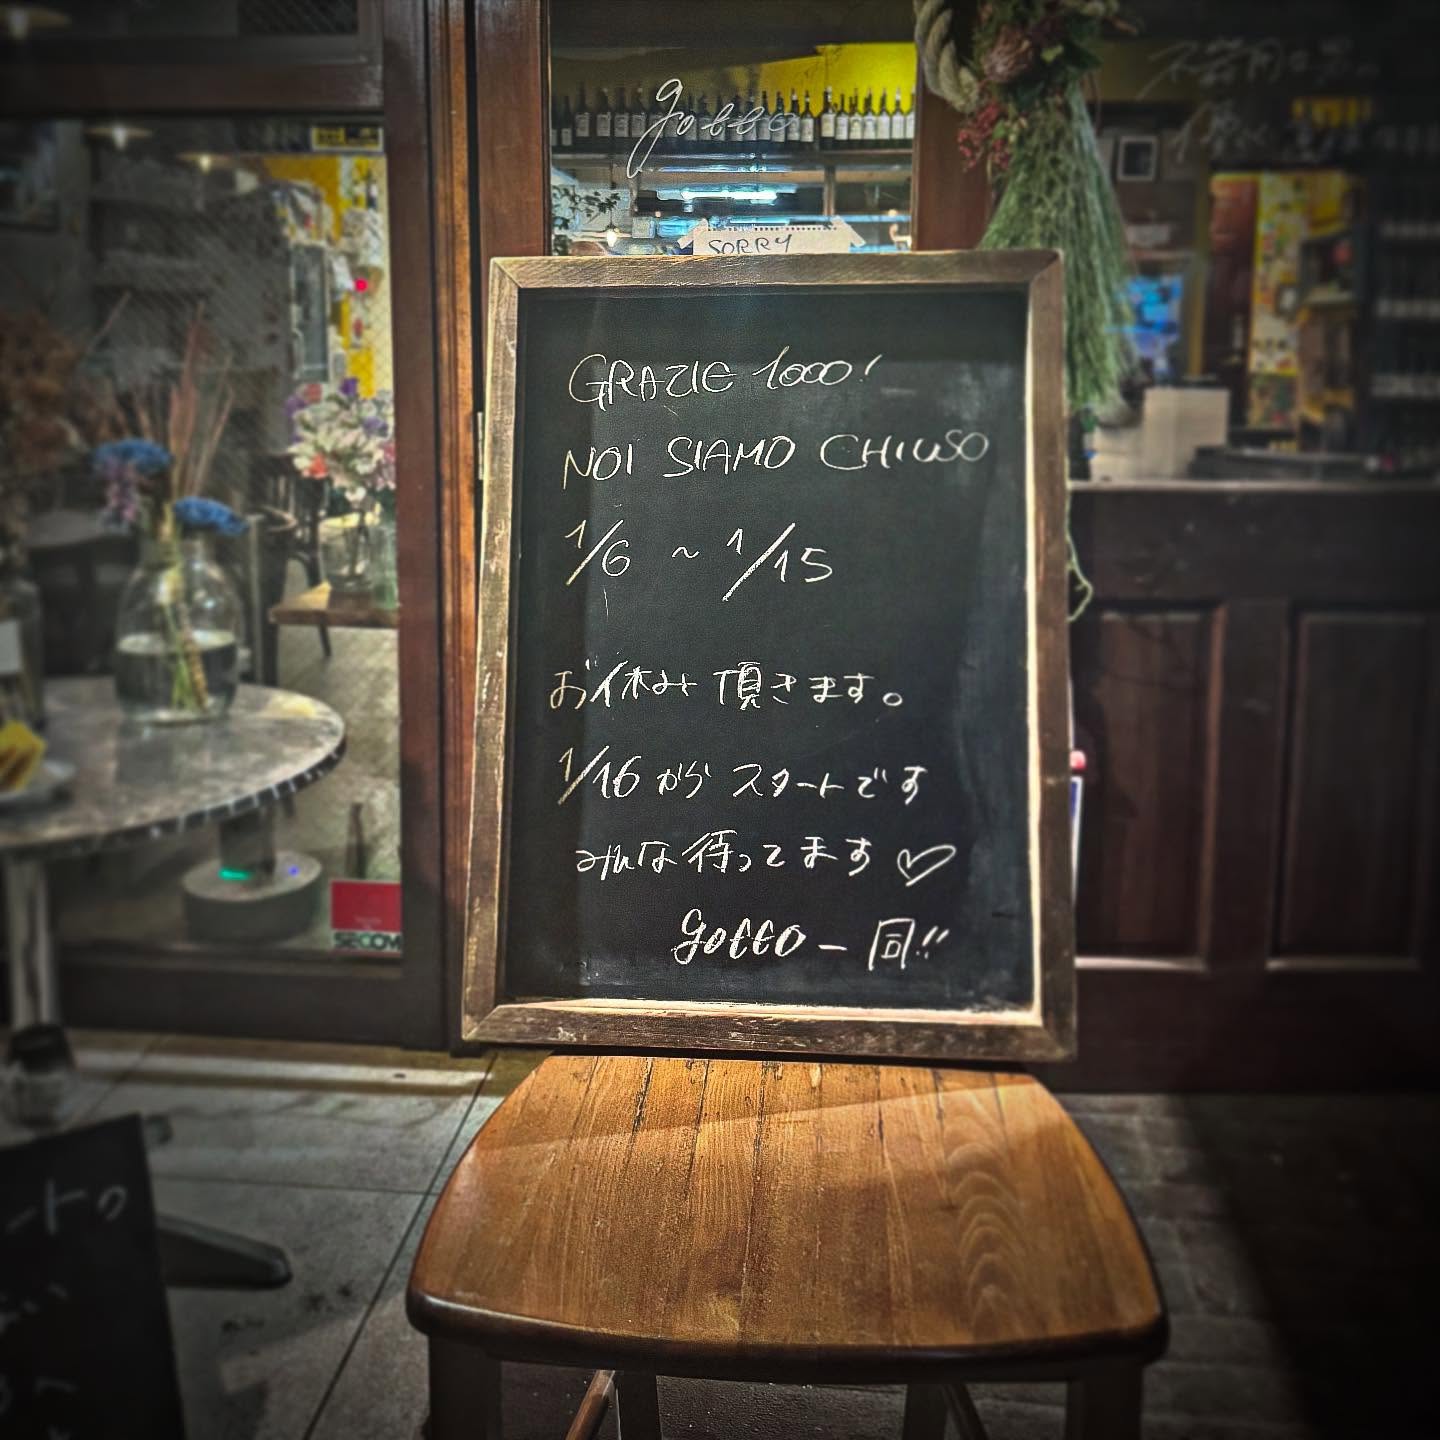 gobbo
SORRY
GRAZIE 1000!
NOI SIAMO CHIUSO
1/6 ~ 1/15
お休み頂きます。
1/16から スタートです
みんな待ってます♡
gobbo一同!!
SECOM